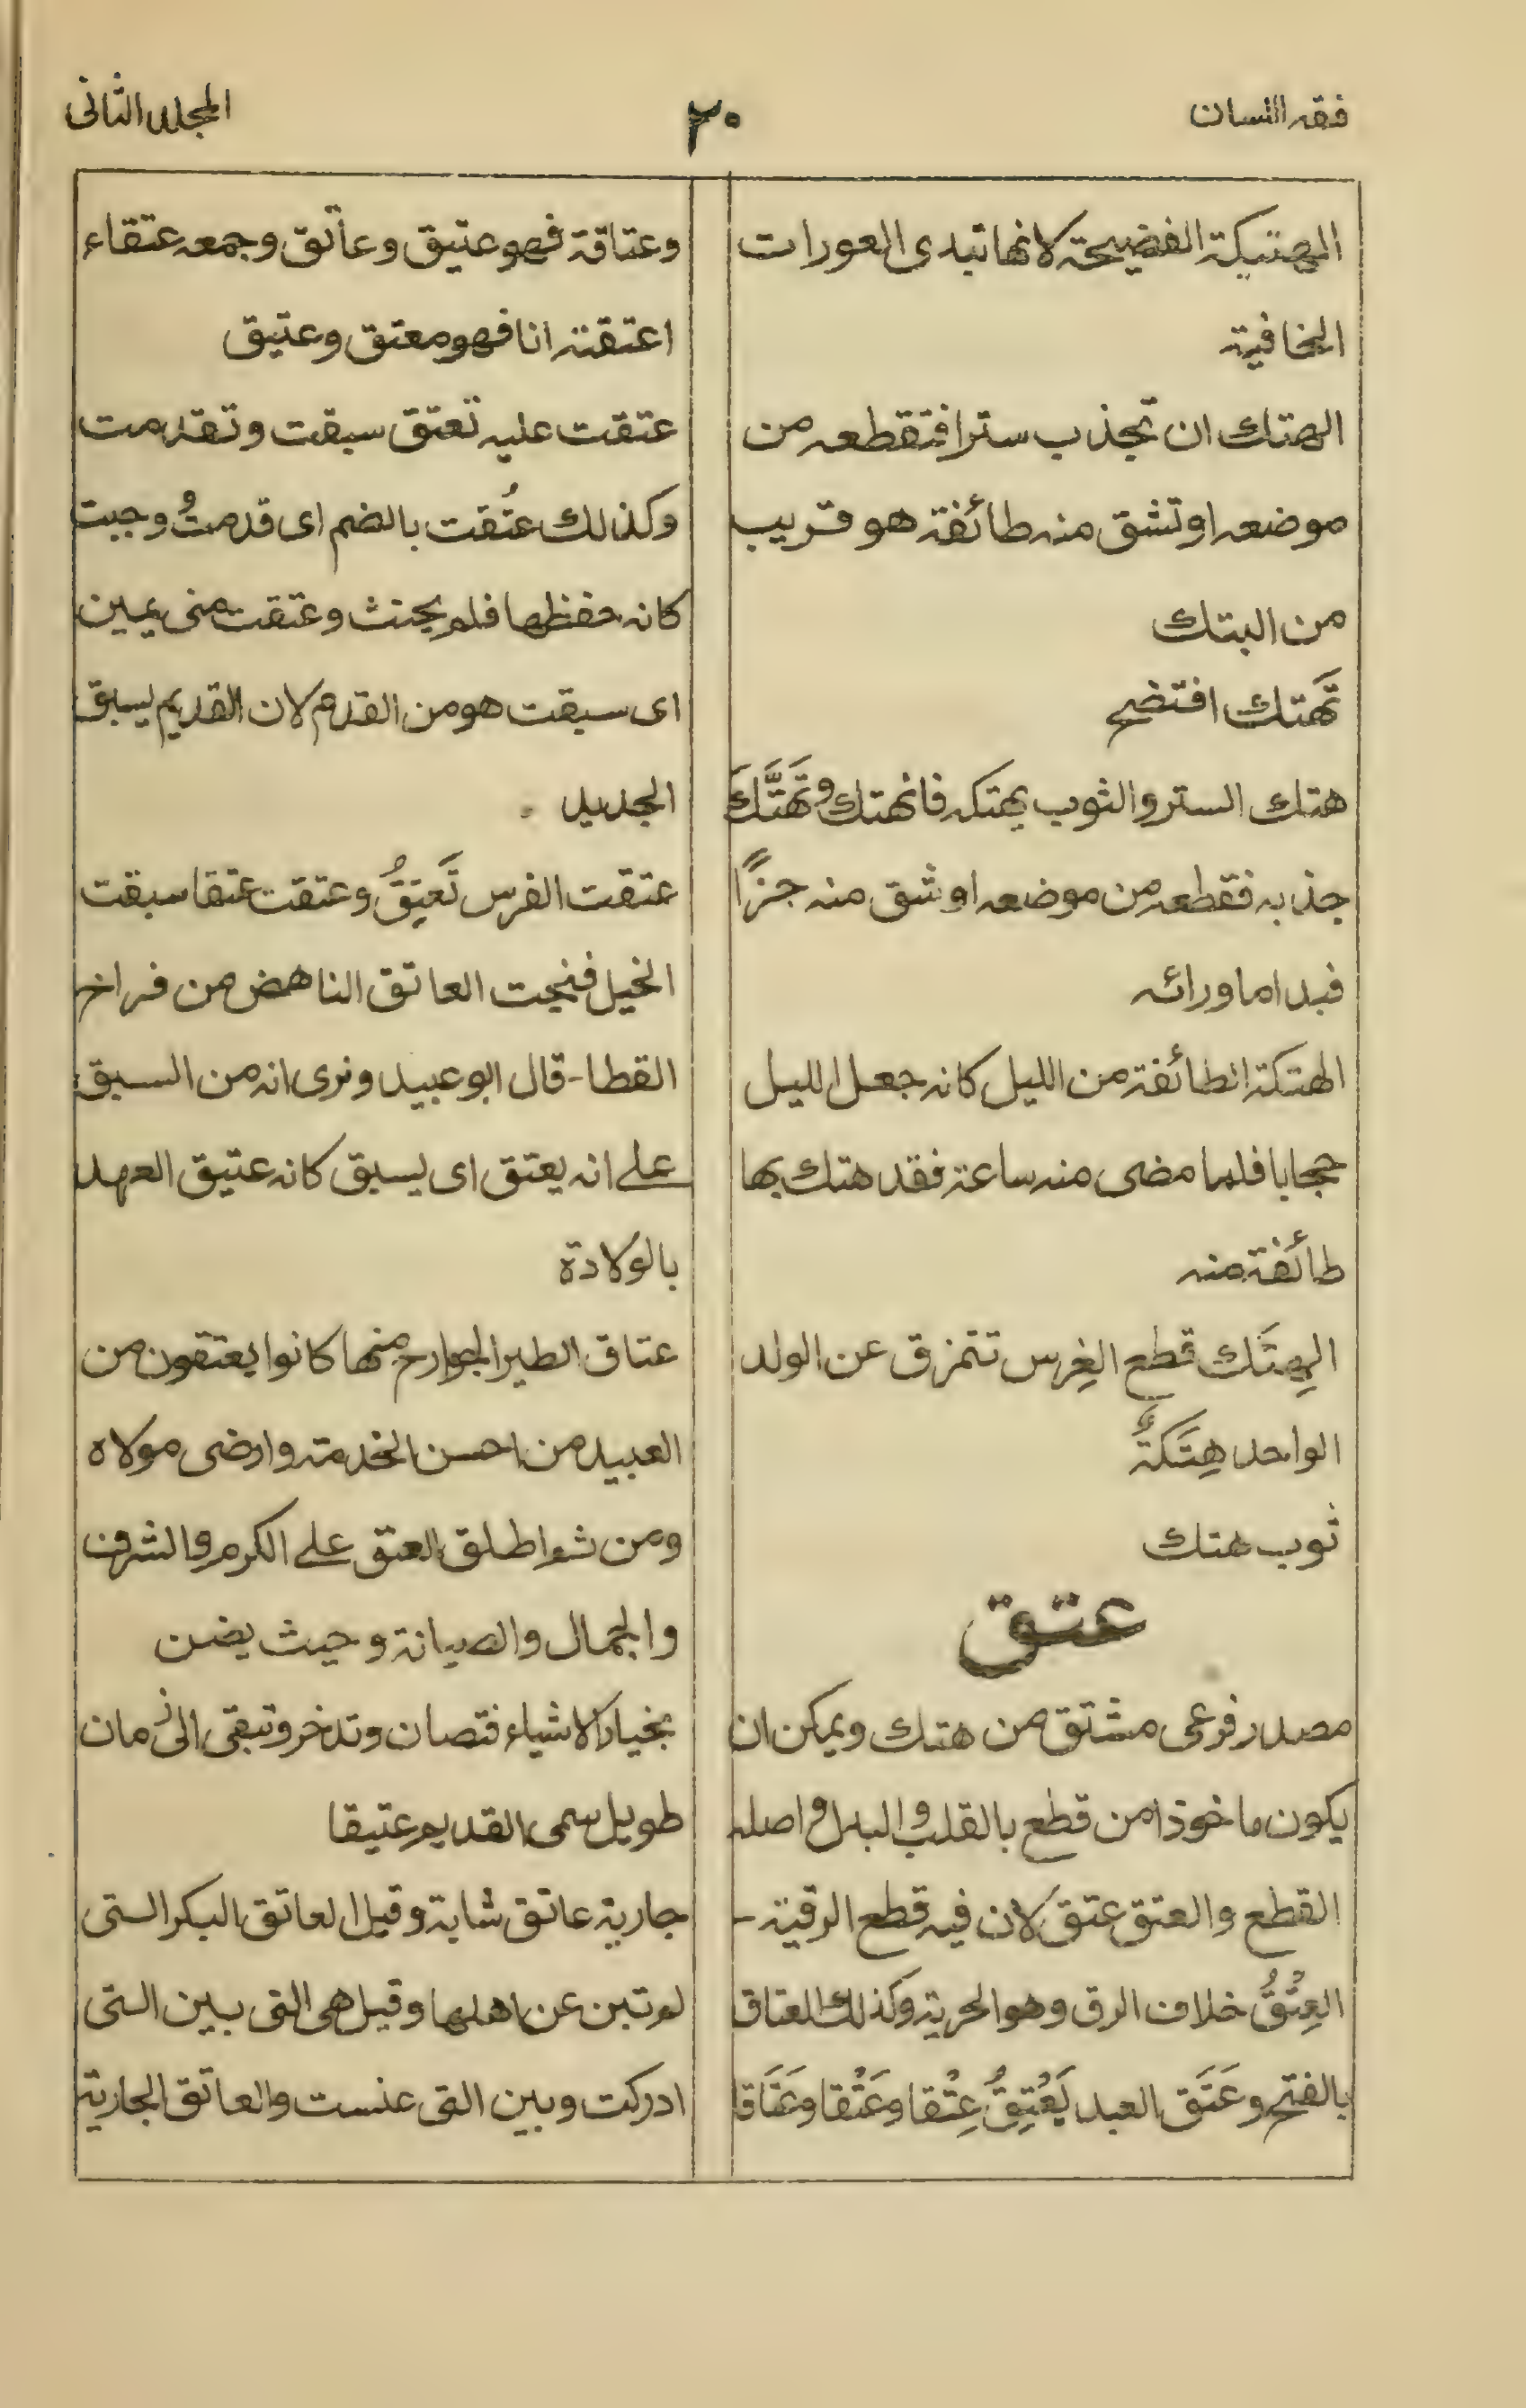 فقه اللسان
٣٠
المجلد الثانی
الهتيكة الفضيحة لانها تبدی العورات
الخافية
الهتك ان تجذب سترا فتقطعه من
موضعه او تشق منه طائفة هو قريب
من البتك
تَهتك افتضح
هتك الستر والثوب يهتكه فانهتك وتَهَتَّكَ
جذبه فقطعه من موضعه او شق منه جزًا
فبدا ما ورائه
الهتكة الطائفة من الليل كانه جعل الليل
حجابا فلما مضی منه ساعة فقد هتك بها
طائفة منه
الهِتَك قطع الغِرس تتمزق عن الولد
الواحد هِتَكةٌ
ثوب هتك
عتق
مصدر فرعی مشتق من هتك ويمكن ان
يكون ماخوذا من قطع بالقلب والبدل واصله
القطع والعتق عتق لان فيه قطع الرقية -
العِتْقُ خلاف الرق وهو الحرية وكذلك العتاق
بالفتح وعَتَق العبد يَعْتِقُ عِتْقا وعَتْقا وعَتَاقا
وعتاقة فهو عتيق وعاتق وجمعه عتقاء
اعتقته انا فهو معتق وعتيق
عتقت عليه تعتق سبقت وتقدمت
وكذالك عتُقت بالضم ای قدمتُ وجبت
كانه حفظها فلم يحنث وعتقت منی يمين
ای سبقت هو من القدم لان القديم يسبق
الجديد .
عتقت الفرس تَعتِقُ وعتقت عتقا سبقت
الخيل فنجت العاتق الناهض من فراخ
القطا - قال ابو عبيد ونری انه من السبق
علے انه يعتق ای يسبق كانه عتيق العهد
بالولادة
عتاق الطير الجوارح منها كانوا يعتقون من
العبيد من احسن الخدمة وارضی مولاه
ومن ثم اطلق العتق علے الكرم والشرف
والجمال والصيانة وحيث يضن
بخيار الاشياء فتصان وتدخر وتبقی الی زمان
طويل سمی القديم عتيقا
جارية عاتق شابة وقيل العاتق البكر التی
لم تبن عن اهلها وقيل هی التی بين التی
ادركت وبين التی عنست والعاتق الجارية